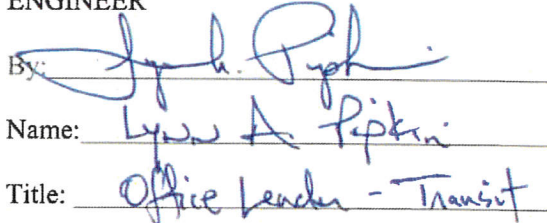 ENGINEER
By: Lynn A. Pipkin
Name: Lynn A. Pipkin
Title: Office Leader - Transit